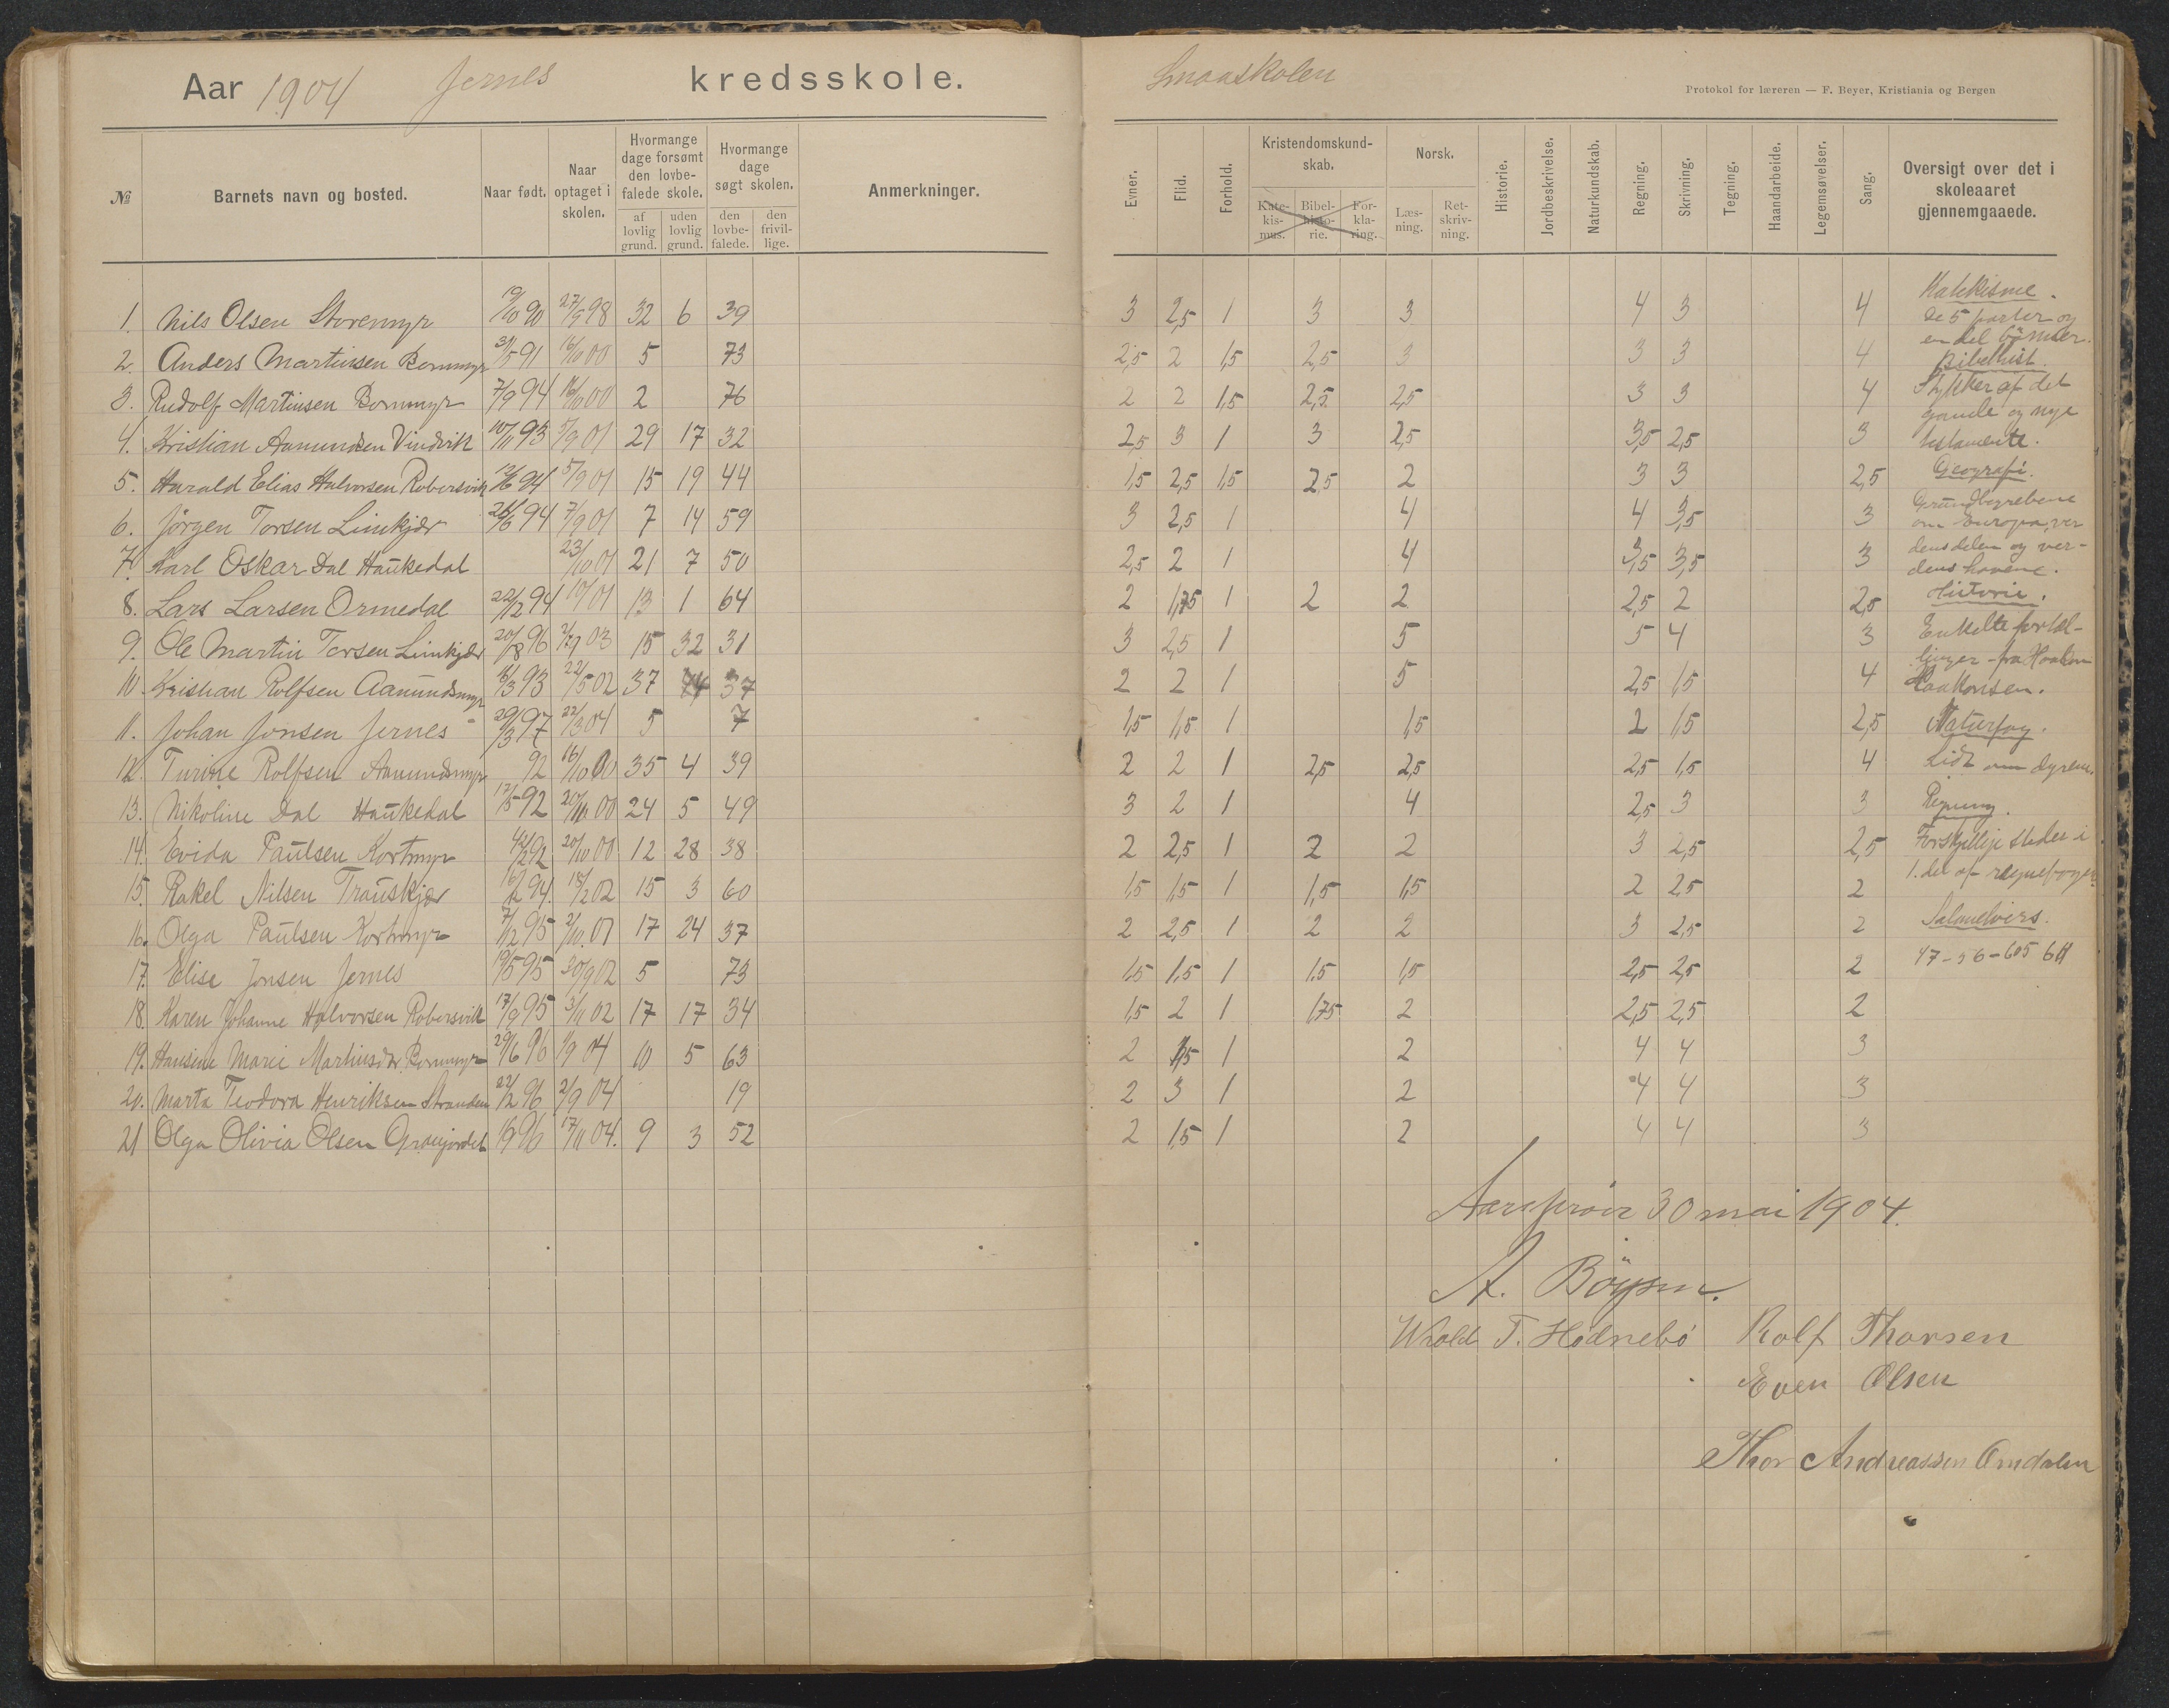 Aar 1904 Jernes kredsskole. Smaaskolen
Protokol for læreren — F. Beyer, Kristiania og Bergen
№ Barnets navn og bosted. Naar født. Naar optaget i skolen. Hvormange dage forsømt den lovbefalede skole. af lovlig grund. uden lovlig grund. Hvormange dage søgt skolen. den lovbefalede. den frivillige. Anmerkninger.
Evner. Flid. Forhold. Kristendomskundskab. Katekismus. Bibelhistorie. Forklaring. Norsk. Læsning. Retskrivning. Historie. Jordbeskrivelse. Naturkundskab. Regning. Skrivning. Tegning. Haandarbeide. Legemsøvelser. Sang. Oversigt over det i skoleaaret gjennemgaaede.
1. Nils Olsen Storemyr 19/10 90 27/9 98 32 6 39 3 2,5 1 3 3 4 3 4
2. Anders Martinsen Bommyr 31/5 91 16/10 00 5 73 2,5 2 1,5 2,5 3 3 3 4
3. Rudolf Martinsen Bommyr 7/9 94 16/10 00 2 76 2 2 1,5 2,5 2,5 3 3 4
4. Kristian Aamundsen Vindvik 10/11 93 5/9 01 29 17 32 2,5 3 1 3 2,5 3,5 2,5 3
5. Harald Elias Halvorsen Robersvik 12/6 94 5/9 01 15 19 44 1,5 2,5 1,5 2,5 2 3 3 2,5
6. Jörgen Torsen Limkjær 26/6 94 7/9 01 7 14 59 3 2,5 1 4 4 3,5 3
7. Karl Oskar Dal Haukedal 23/10 01 21 7 50 2,5 2 1 4 3,5 3,5 3
8. Lars Larsen Ormedal 22/12 94 10/01 13 1 64 2 1,75 1 2 2 2,5 2 2,5
9. Ole Martin Torsen Limkjær 20/8 96 03 15 32 31 3 2,5 1 5 5 4 3
10. Kristian Rolfsen Aamundsmyr 16/3 93 22/5 02 37 37 2 2 1 5 2,5 1,5 4
11. Johan Jonsen Jernes 29/3 97 22/3 04 5 7 1,5 1,5 1 1,5 2 1,5 2,5
12. Turine Rolfsen Aamundsmyr 92 16/10 00 35 4 39 2 2 1 2,5 2,5 2,5 1,5 4
13. Nikoline Dal Haukedal 17/5 92 20/10 00 24 5 49 3 2 1 4 2,5 3 3
14. Evida Paulsen Kortmyr 4/2 92 20/10 00 12 28 38 2 2,5 1 2 2 3 2,5 2,5
15. Rakel Nilsen Trauskjær 16/12 94. 18/2 02 15 3 60 1,5 1,5 1 1,5 1,5 2 2,5 2
16. Olga Paulsen Kortmyr 7/12 95 2/10. 01 17 24 37 2 2,5 1 2 2 3 2,5 2
17. Elise Jonsen Jernes 19/5 95 30/9 02 5 73 1,5 1,5 1 1,5 1,5 2,5 2,5 2
18. Karen Johanne Halvorsen Robersvik 17/9 95 3/11 02 17 17 34 1,5 2 1 1,75 2 2,5 2,5 2
19. Hansine Marie Martinsdtr Bommyr 29/6 96 1/9 04 10 5 63 2 1,5 1 2 4 4 3
20. Marta Teodora Henriksen Stranden 22/2 96 2/9 04 19 2 3 1 2 4 4 3
21 Olga Olivia Olsen 16/9 96 17/11 04. 9 3 52 2 1,5 1 2 4 4 3
Katekisme.
De 5 parter og
en del bönner.
Bibelhist.
Stykker af det
gamle og nye
testamente.
Geografi.
Grundbegrebene
om Europa, ver
densdelene og ver-
denshavene.
Historie.
Enkelte fortæl-
linger fra Haakon
Haakonsen.
Naturfag.
Lidt om dyrene.
Regning.
Forskjellige steder i
1. del af regnebogen.
Salmevers.
47 - 56 - 605 611
Aarsprøve 30 mai 1904.
A. Böysen.
T. Hødnebø Rolf Thorsen
Even Olsen
Thor Andreassen Omdalen